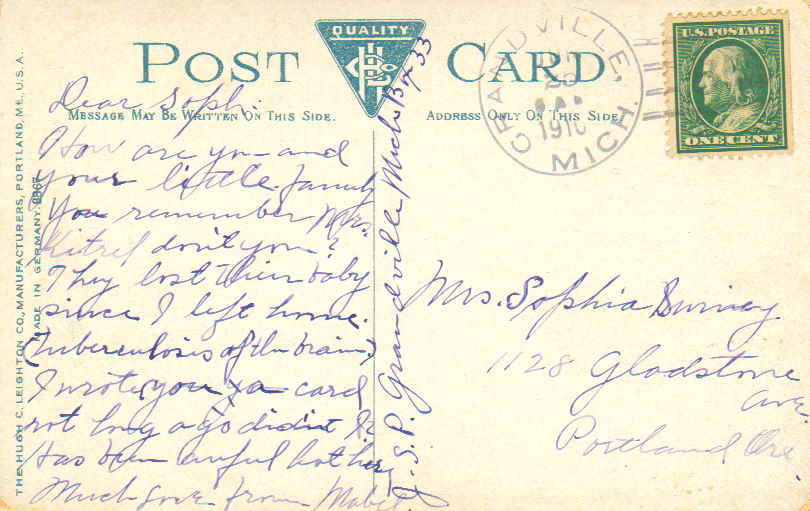 POST CARD
QUALITY
HL Co
MESSAGE MAY BE WRITTEN ON THIS SIDE.
ADDRESS ONLY ON THIS SIDE.
THE HUGH C. LEIGHTON CO., MANUFACTURERS, PORTLAND, ME., U.S.A.
MADE IN GERMANY.
GRANDVILLE, MICH.
1910
U.S. POSTAGE
ONE CENT
Dear Soph:
How are you and
your little family
You remember Mrs.
don't you?
They lost their baby
since I left home.
(Tuberculosis of the brain)
I wrote you a card
not long ago didn't I?
Has been awful hot here
Much love from Mabel
Grandville Mich Box 33
Mrs. Sophia
1128 Gladstone
ave.
Portland Ore